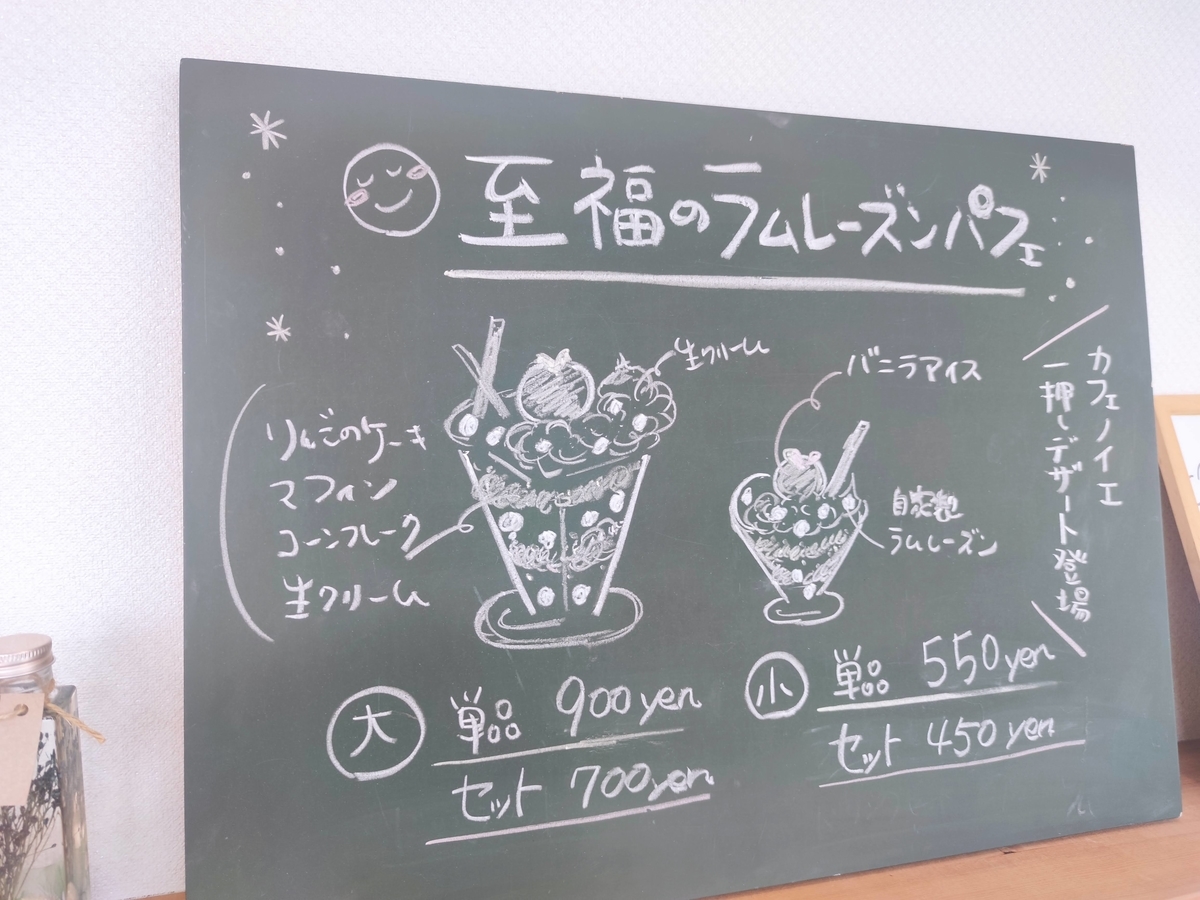 至福のラムレーズンパフェ
カフェノイエ
一押しデザート登場
生クリーム
りんごのケーキ
マフィン
コーンフレーク
生クリーム
バニラアイス
自家製
ラムレーズン
大 単品 900yen
セット 700yen
小 単品 550yen
セット 450yen